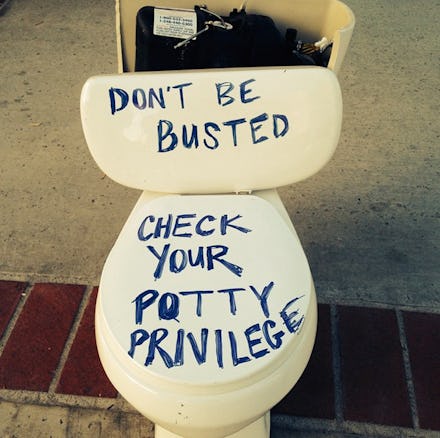 DON'T BE
BUSTED
CHECK
YOUR
POTTY
PRIVILEGE